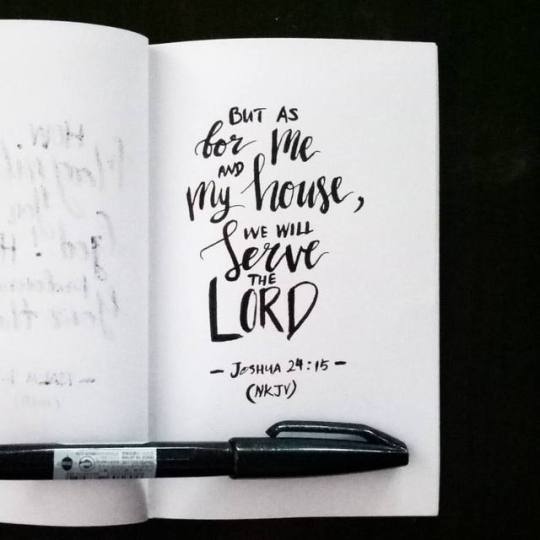 BUT AS
for me
AND
my house,
WE WILL
Serve
THE
LORD
- JOSHUA 24:15 -
(NKJV)